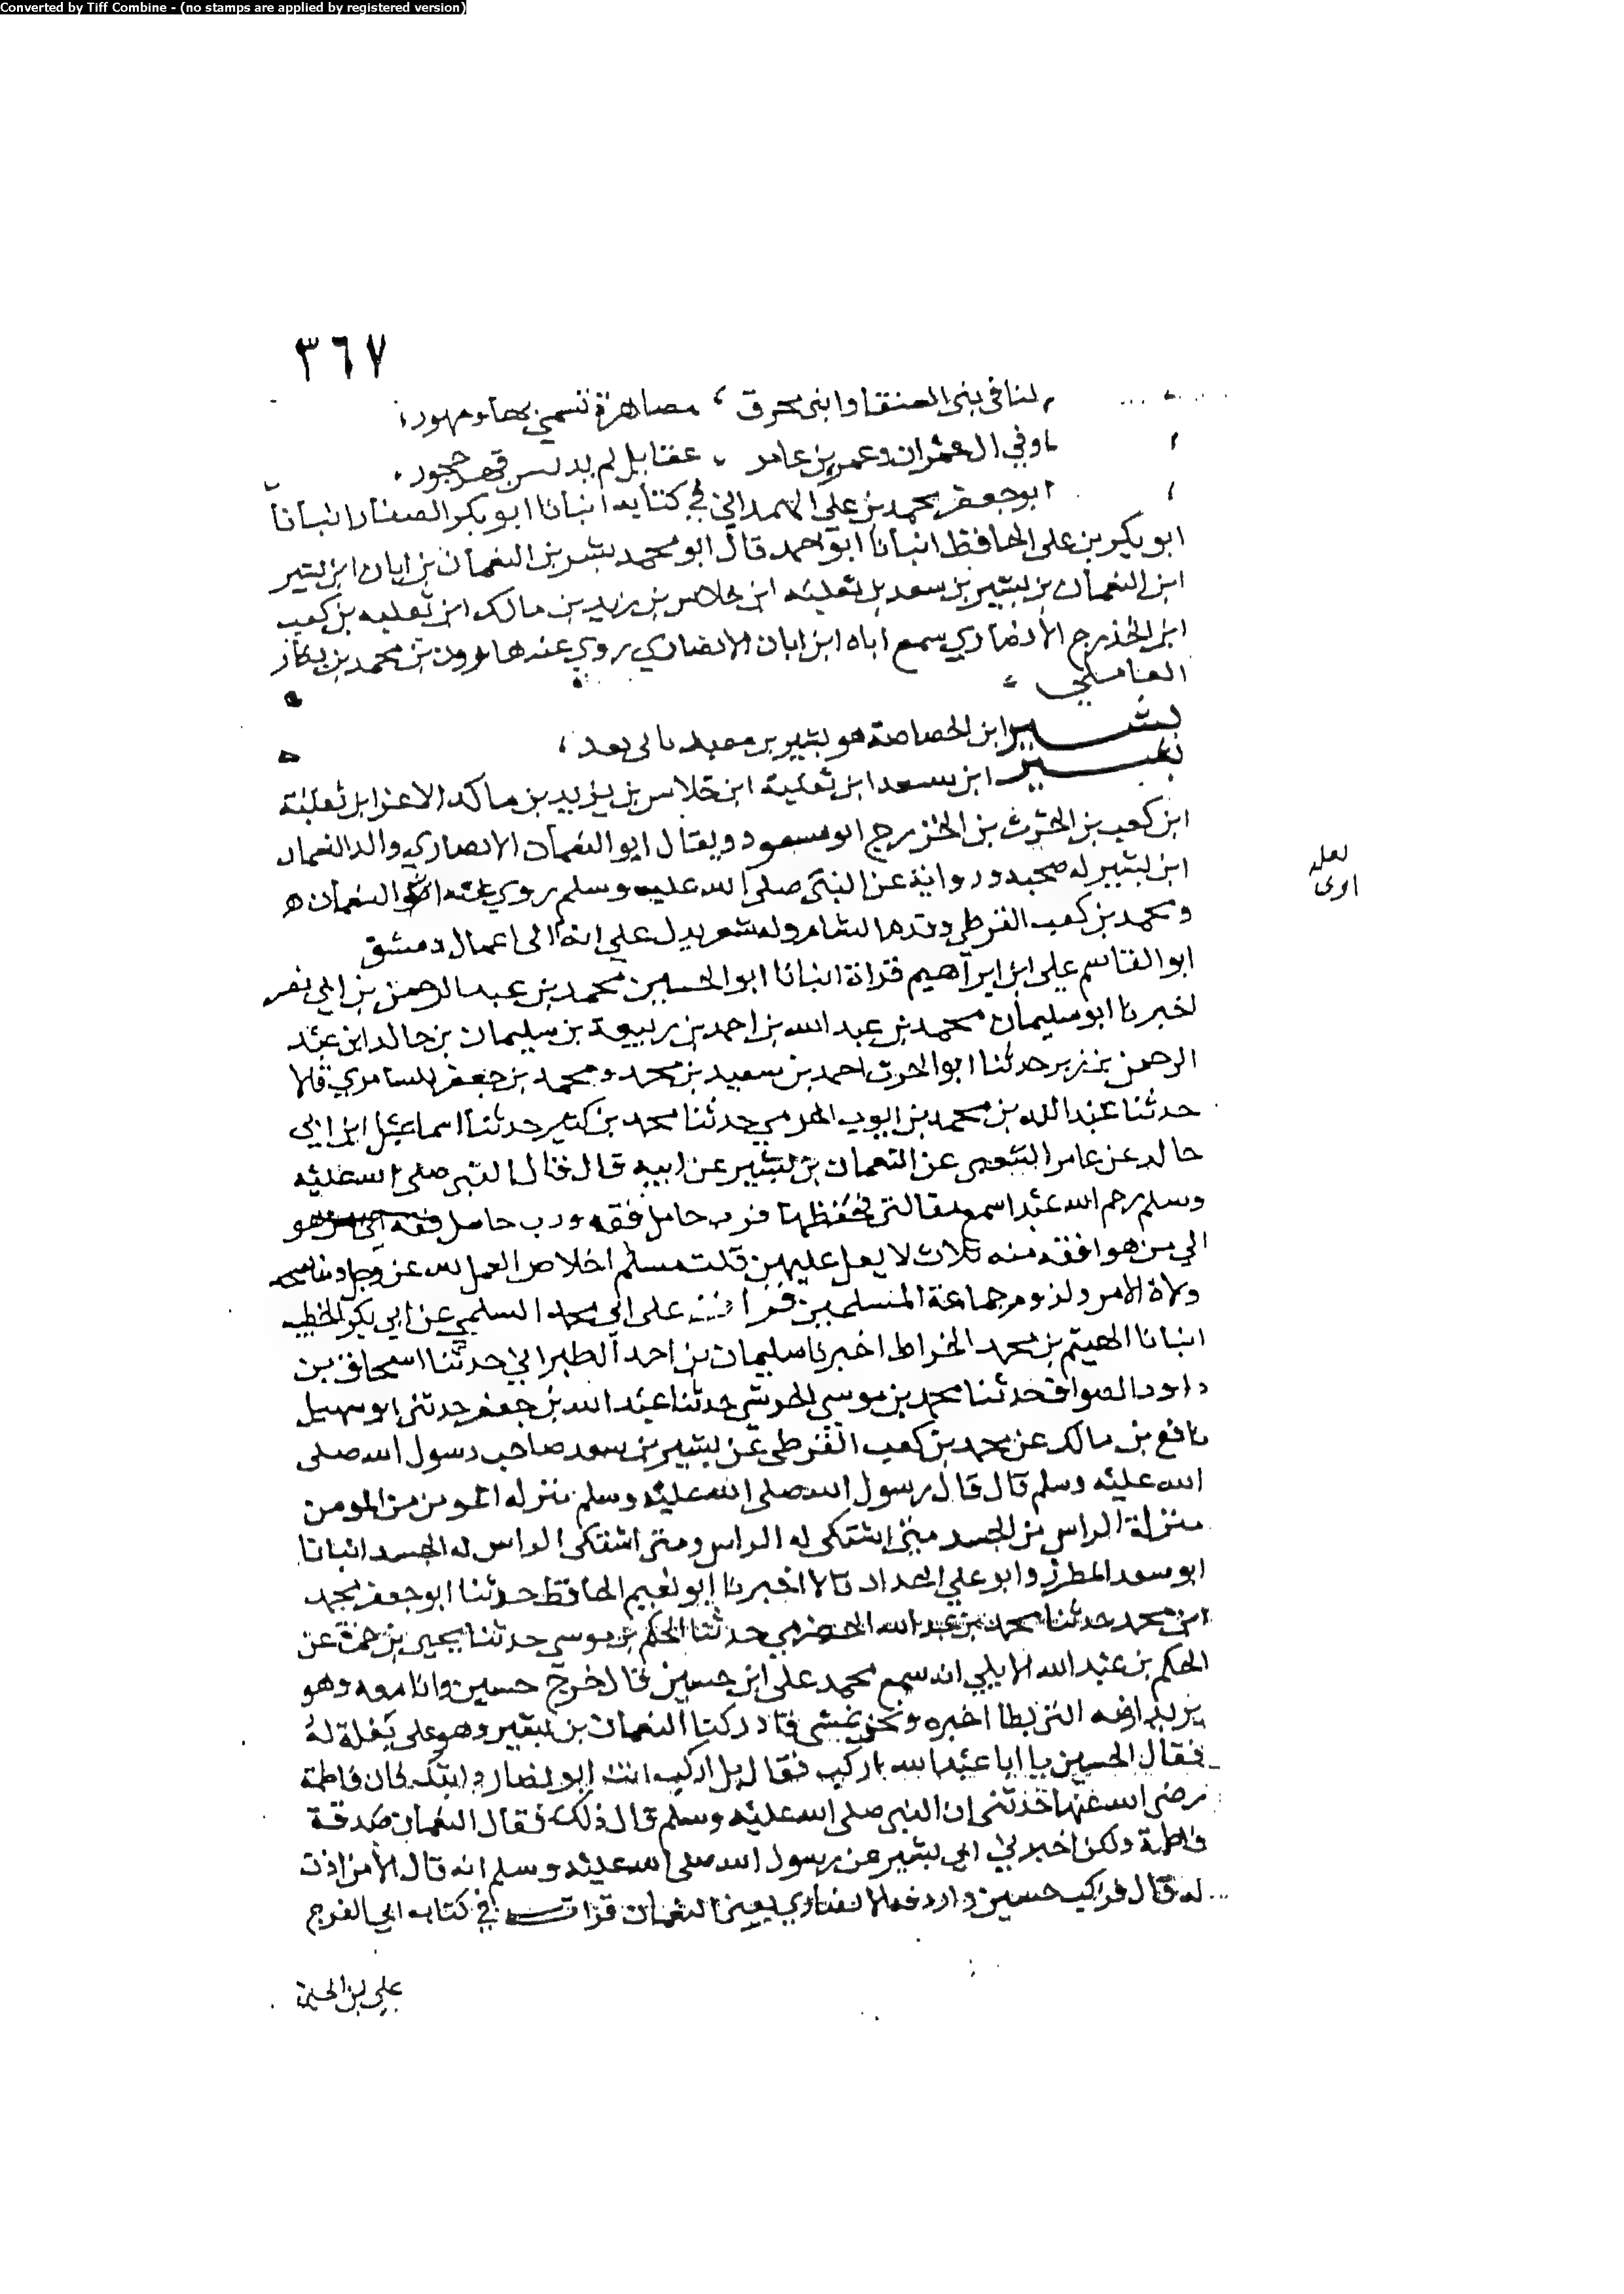 Converted by Tiff Combine - (no stamps are applied by registered version)
٣٦٧
لنا في بني العنقا وابني محرق ، مصاهرة تسمي بها ومهور ،
وفي ال عمران وعمرو بن عامر ، عقايل لم يدنس حجور ،
ابو جعفر محمد بن علي الهمداني في كتابه انبانا ابو بكر الصفار انبانا
ابو بكر بن علي الحافظ انبانا ابو احمد قال ابو محمد بشر بن النعمان بن ابان ابن بشير
ابن النعمان بن بشير بن سعد بن ثعلبه ابن خلاص بن زيد بن مالك ابن ثعلبه بن كعب
ابن الخذرج الانصاري سمع اباه ابن ابان الانصاري روي عنه هارون بن محمد بن بكار
العاملي
بشير ابن الخصاصة هو بشير بن معبد ياتي بعد ،
بشير ابن سعد ابن ثعلبة ابن خلاس بن يزيد بن مالك الاغر ابن ثعلبة
ابن كعب بن الحرث بن الخزرج ابو مسعود ويقال ابو النعمان الانصاري والد النعمان
ابن بشير له صحبه ورواية عن النبي صلى الله عليه وسلم روي عنه النعمان
لعله
اوى
ومحمد بن كعب القرظي وقدم الشام وله شعر يدل علي انه الى اعمال دمشق
ابو القاسم علي ابن ابراهيم قراة انبانا ابو الحسين محمد بن عبد الرحمن بن ابي نصر
اخبرنا ابو سليمان محمد بن عبد الله بن احمد بن ربيعة بن سليمان بن خالد ابن عبد
الرحمن بن زبر حدثنا ابو الحرث احمد بن سعيد بن محمد ومحمد بن جعفر السامري قالا
حدثنا عبد الله بن محمد بن ايوب المخرمي حدثنا محمد بن كثير حدثنا اسماعيل ابن ابي
خالد عن عامر الشعبي عن النعمان بن بشير عن ابيه قال قال النبي صلى الله عليه
وسلم رحم الله عبدا سمع مقالتي فحفظها فرب حامل فقه ورب حامل فقه
الي من هو افقه منه ثلاث لا يغل عليهن قلب مسلم اخلاص العمل لله عز وجل ومناصحه
ولاة الامر ولزوم جماعة المسلمين قرات على ابي محمد السلمي عن ابي بكر الخطيب
انبانا الهيثم بن محمد الخراط اخبرنا سليمان بن احمد الطبراني حدثنا اسحاق بن
داود الصواف حدثنا محمد بن موسي الحرشي حدثنا عبد الله بن جعفر حدثني ابو سهيل
نافع بن مالك عن محمد بن كعب القرظي عن بشير بن سعد صاحب رسول الله صلى
الله عليه وسلم قال قال رسول الله صلى الله عليه وسلم منزلة المومن من المومن
منزلة الراس من الجسد متى اشتكى له الراس ومتى اشتكى الراس له الجسد انبانا
ابو سعد المطرز وابو علي الحداد قالا اخبرنا ابو نعيم الحافظ حدثنا ابو جعفر محمد
ابن محمد حدثنا محمد بن عبد الله الحضرمي حدثنا الحكم بن موسي حدثنا يحيى بن حمزة عن
الحكم بن عبد الله الايلي انه سمع محمد علي ابن حسين قال خرج حسين وانا معه وهو
يريد ارضه التي بظاهر ونحن نمشي فادركنا النعمان بن بشير وهو على بغلة له
فقال الحسين يا ابا عبد الله اركب فقال بل اركب انت دابتك فان فاطمة
رضى الله عنها حدثتني ان النبي صلى الله عليه وسلم قال ذلك فقال النعمان صدقة
فاطمة ولكن اخبرني ابي بشير عن رسول الله صلى الله عليه وسلم انه قال الا من اذن
له قال فركب حسين واردفه الانصاري يعني النعمان قرات في كتاب ابي الفرج
علي بن الحسين